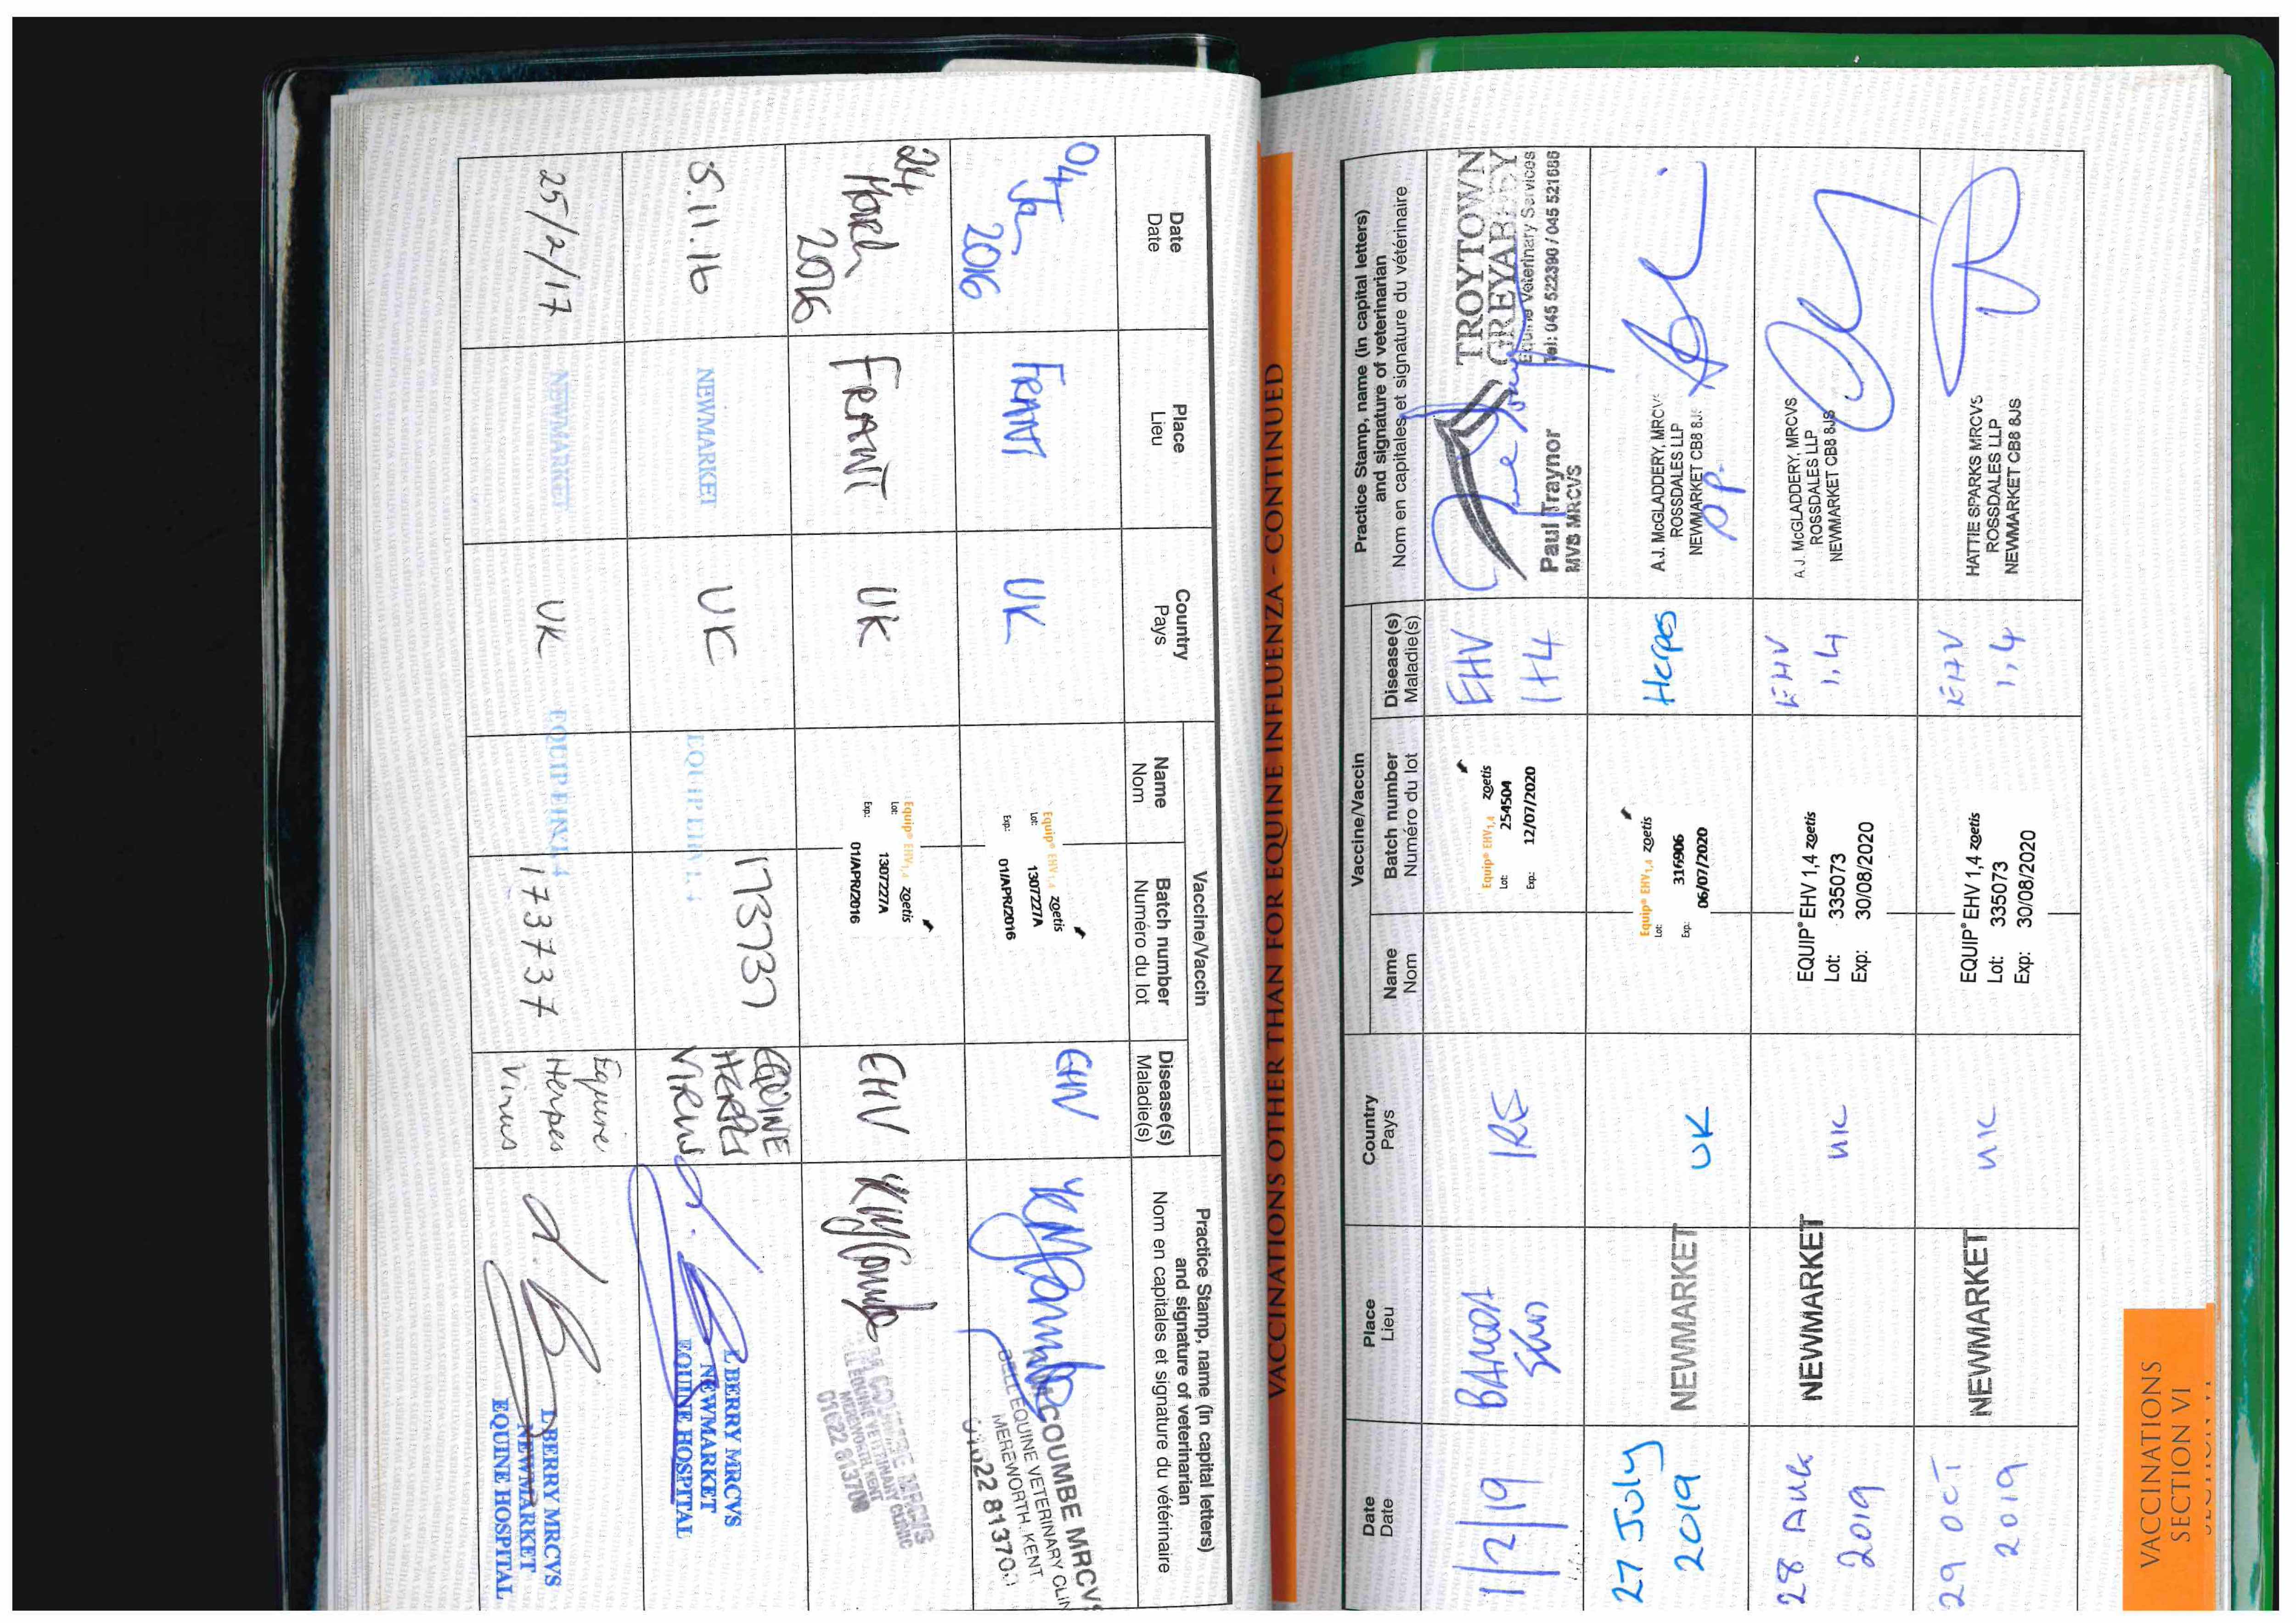 VACCINATIONS OTHER THAN FOR EQUINE INFLUENZA - CONTINUED
Date
Date
Place
Lieu
Country
Pays
Vaccine/Vaccin
Name
Nom
Batch number
Numéro du lot
Disease(s)
Maladie(s)
Practice Stamp, name (in capital letters)
and signature of veterinarian
Nom en capitales et signature du vétérinaire
04 Jan
2016
FRANT
UK
Equip® EHV1,4 zoetis
Lot: 1307227A
Exp: 01/APR/2016
EHV
COUMBE MRCVS
BELL EQUINE VETERINARY CLIN
MEREWORTH. KENT.
24
March
2016
FRANT
UK
Equip® EHV1,4 zoetis
Lot: 1307227A
Exp.: 01/APR/2016
EHV
EQUINE VETERINARY CLINIC
MEREWORTH KENT
01622 813700
5.11.16
NEWMARKET
UK
EQUIP EHV 1,4
173737
EQUINE
HERPES
VIRUS
L BERRY MRCVS
NEWMARKET
EQUINE HOSPITAL
25/2/17
NEWMARKET
UK
EQUIP EHV 1,4
173737
Equine
Herpes
Virus
L BERRY MRCVS
NEWMARKET
EQUINE HOSPITAL
Date
Date
Place
Lieu
Country
Pays
Vaccine/Vaccin
Name
Nom
Batch number
Numéro du lot
Disease(s)
Maladie(s)
Practice Stamp, name (in capital letters)
and signature of veterinarian
Nom en capitales et signature du vétérinaire
1/2/19
IRE
Equip® EHV1,4 zoetis
Lot: 254504
Exp.: 12/07/2020
EHV
1+4
TROYTOWN
GREYABBEY
Equine Veterinary Services
Tel: 045 522390 / 045 521686
Paul Traynor
MVB MRCVS
27 July
2019
NEWMARKET
UK
Equip® EHV1,4 zoetis
Lot: 316906
Exp.: 06/07/2020
Herpes
A.J. McGLADDERY, MRCVS
ROSSDALES LLP
NEWMARKET CB8 8JS
pp.
28 AUG
2019
NEWMARKET
UK
EQUIP® EHV 1,4 zoetis
Lot: 335073
Exp: 30/08/2020
EHV
1,4
A.J. McGLADDERY, MRCVS
ROSSDALES LLP
NEWMARKET CB8 8JS
29 OCT
2019
NEWMARKET
UK
EQUIP® EHV 1,4 zoetis
Lot: 335073
Exp: 30/08/2020
EHV
1,4
HATTIE SPARKS MRCVS
ROSSDALES LLP
NEWMARKET CB8 8JS
VACCINATIONS
SECTION VI